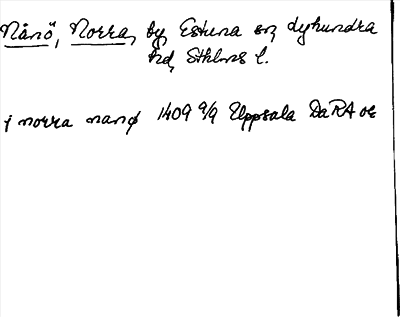 Nånö, Norra, by Estuna sn, Lyhundra
hd, Sthlms l.
i norra nanø 1409 9/9 Uppsala DaRA or